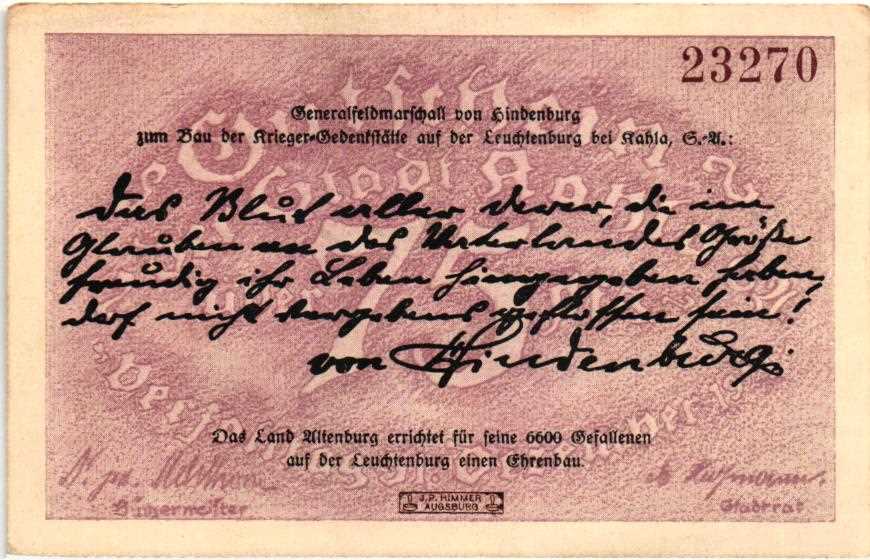 23270
Generalfeldmarschall von Hindenburg
zum Bau der Krieger-Gedenkstätte auf der Leuchtenburg bei Kahla, S.-A.:
Das Blut aller derer, die im
Glauben an des Vaterlandes Größe
freudig ihr Leben hingegeben haben,
darf nicht vergebens geflossen sein!
von Hindenburg.
75
Das Land Altenburg errichtet für seine 6600 Gefallenen
auf der Leuchtenburg einen Ehrenbau.
Bürgermeister
Stadtrat
J.P. HIMMER
AUGSBURG